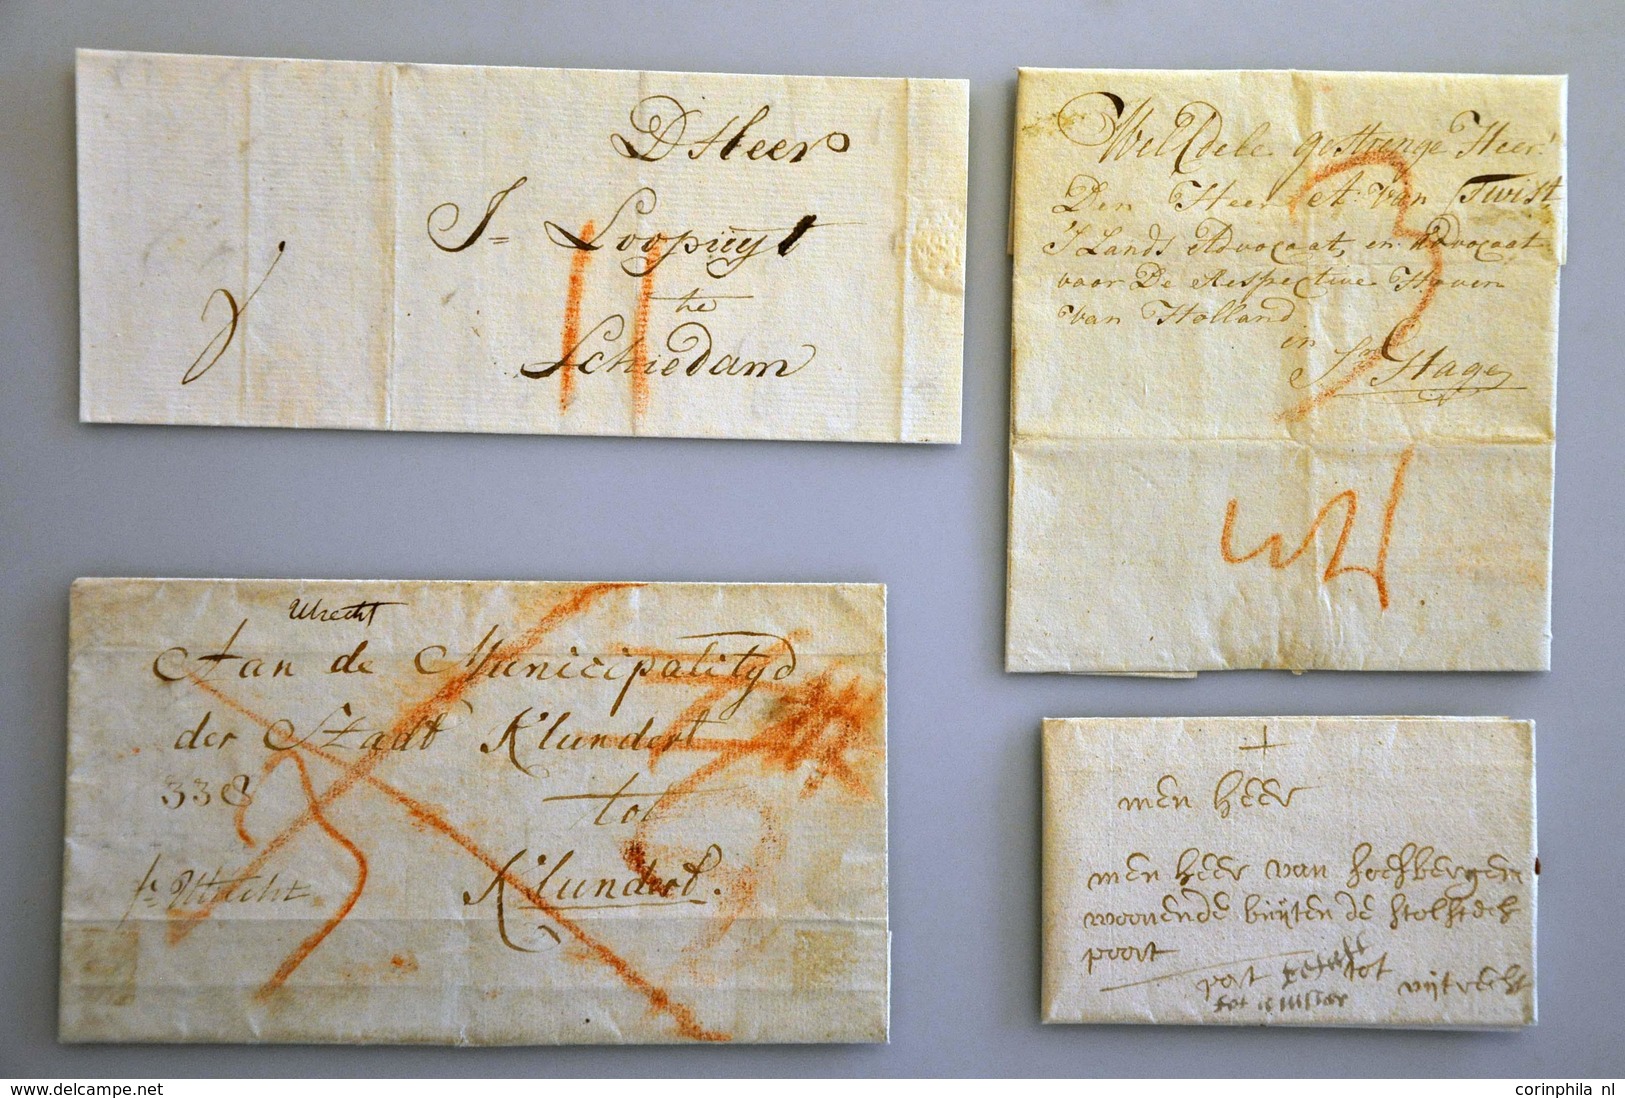 D Heer
J= Loopuyt
te
Schiedam
WelEdele gestrenge Heer
Den Heer A: Van Twist
S'Lands Advocaat, en Advocaat
voor De Respective Hoven
van Holland
in
S'Hage
Utrecht
Aan de Municipalityd
der Stadt Klundert
338
tot
Klundert.
fr Utrecht
men heer
men heer van
woonende buijten de
poort
port tot uijtrecht
corinphila nl